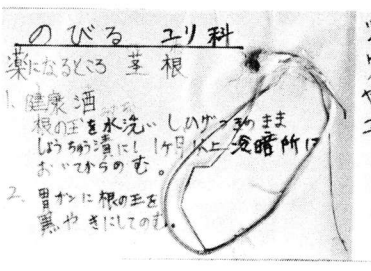 のびる ユリ科
薬になるところ 茎 根
1. 健康酒
根の玉を水洗い しひげつきのまま
しょうちゅう漬にし1ヶ月以上冷暗所に
おいてからのむ。
2. 胃ガンに根の玉を
黒やきにしてのむ。